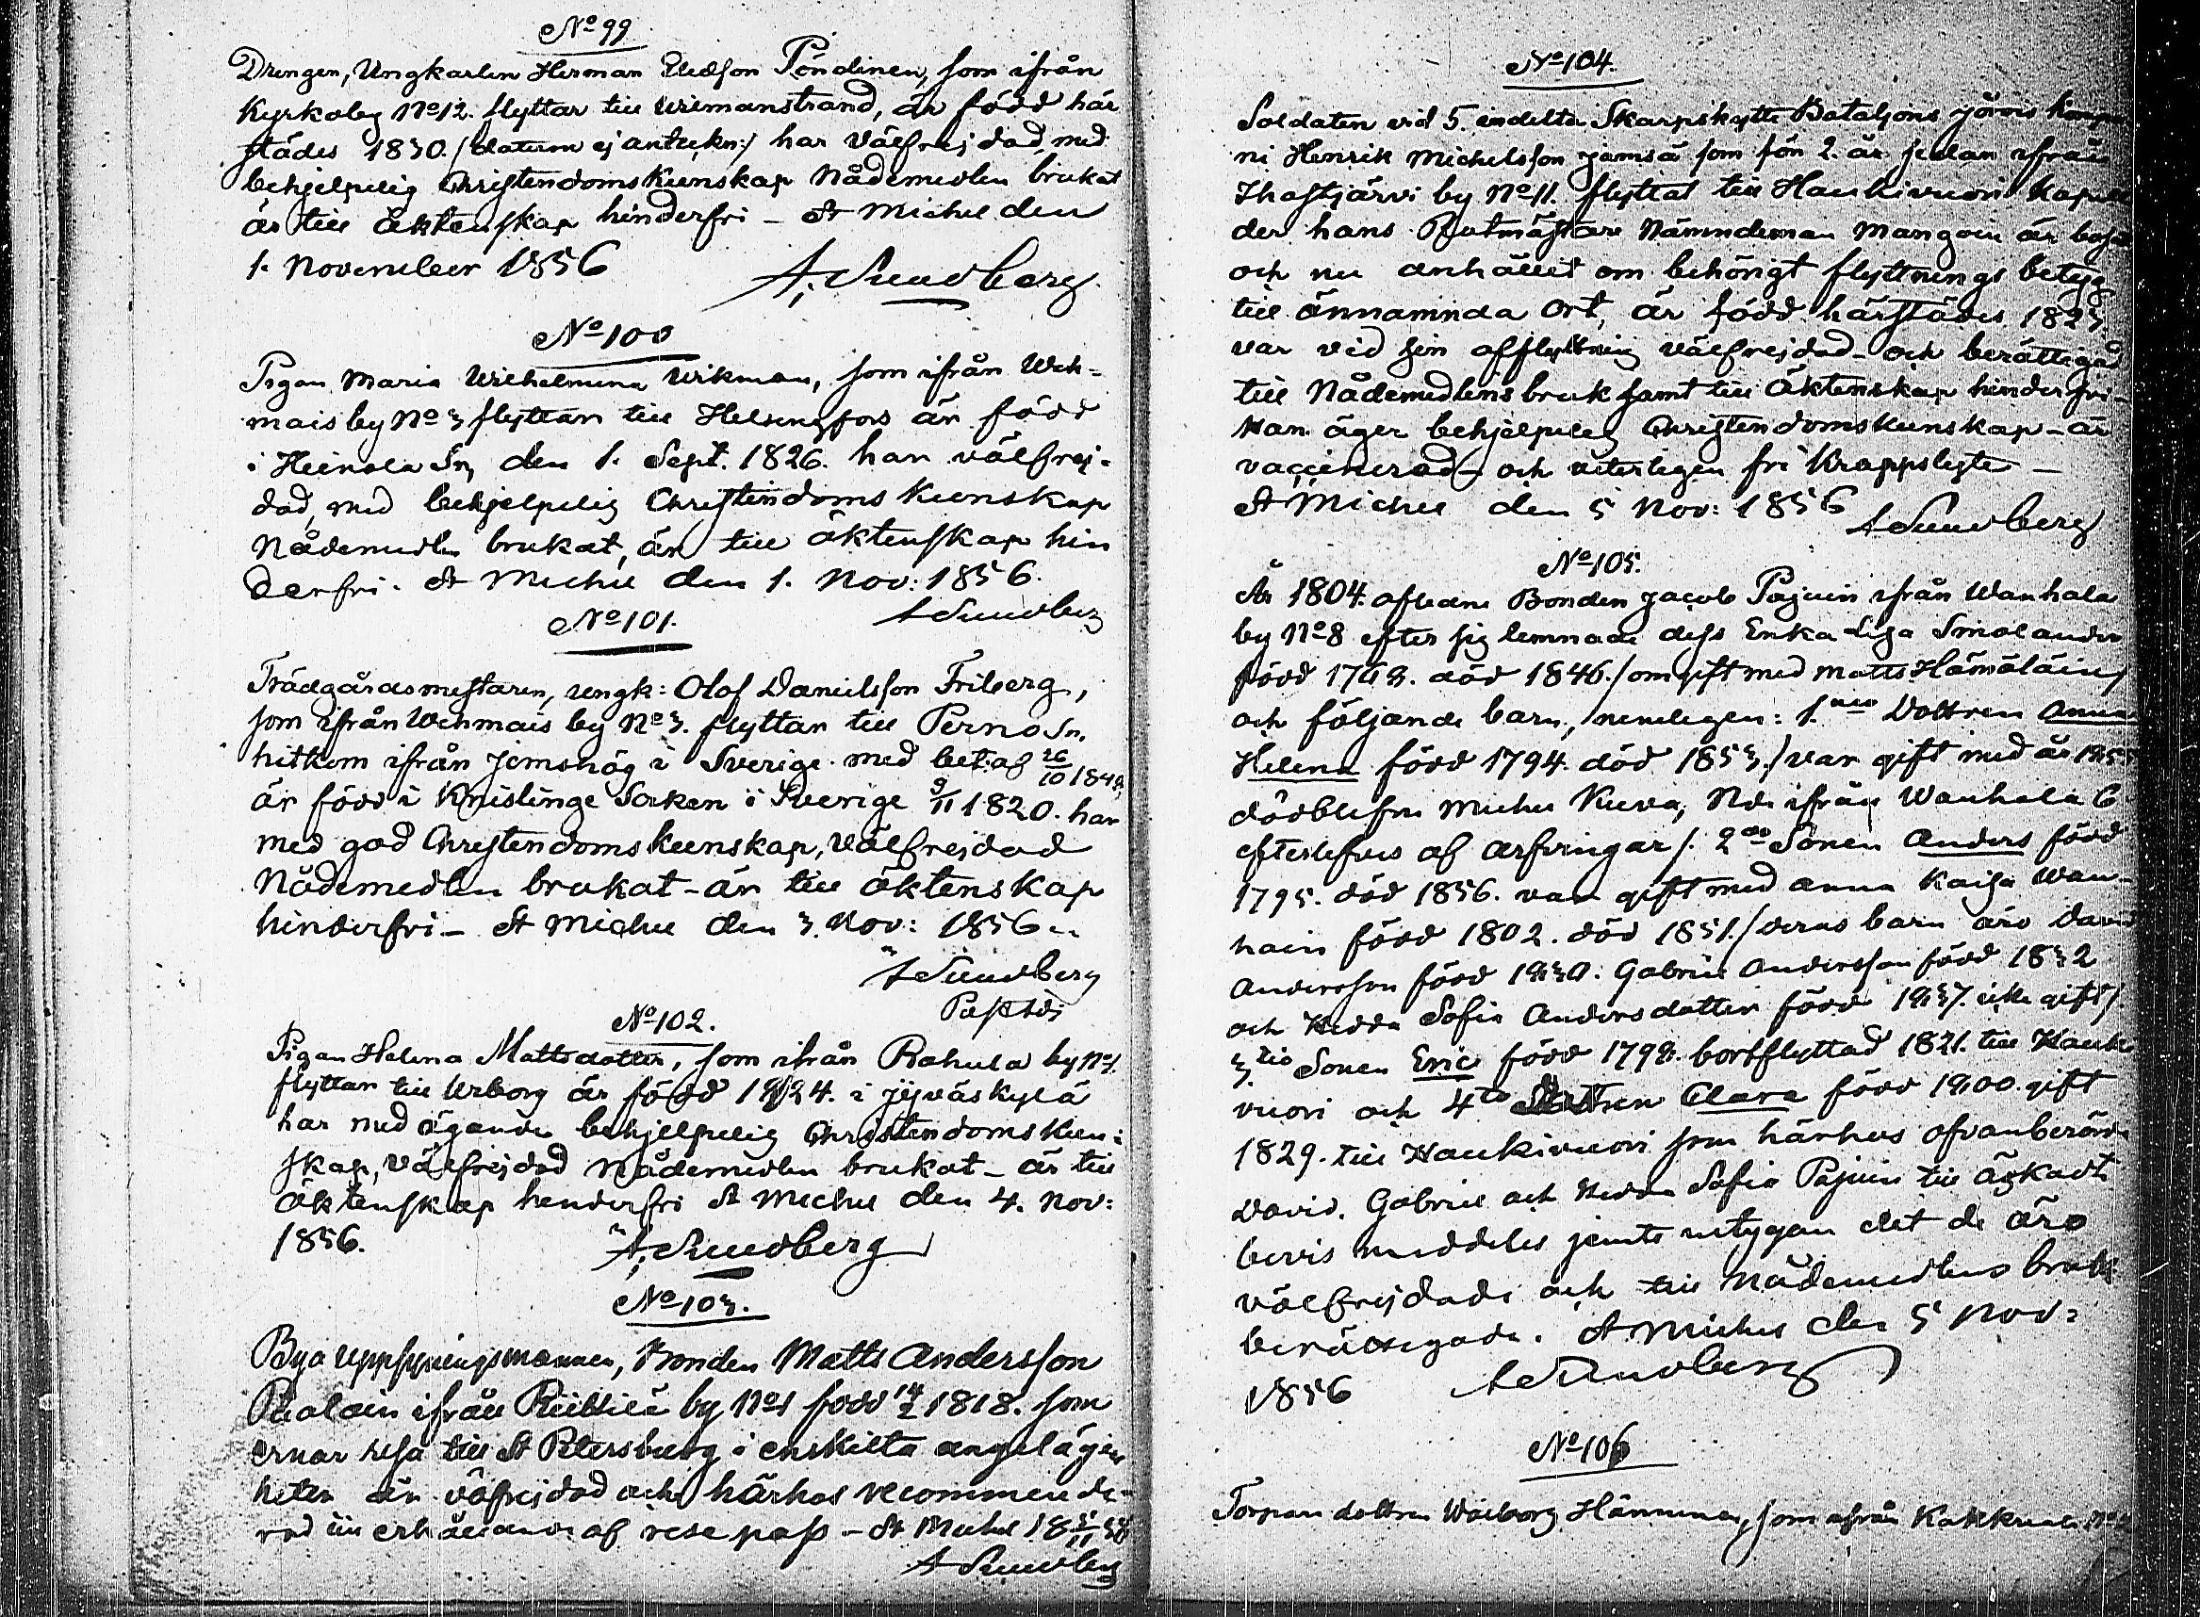 No 99
Drengen, Ungkarlen Herman Eliasson Pöndinen, som ifrån
Kyrkoby No 12. flyttar till Wilmanstrand, är född här
städes 1830. /: datum ej anteckn:/ har välfrejdad, med
behjelpelig Christendomskunskap Nådemedlen brukat
är till Äktenskap hinderfri – St Michel den
1. November 1856
A. Sundberg
No 100
Pigan Maria Wilhelmina Wikman, som ifrån Weh-
mais by No 3 flyttar till Helsingfors är född
i Heinola Sn, den 1. Sept. 1826. har välfrej-
dad, med behjelpelig Christendoms Kunskap
Nådemedlen brukat, är till äktenskap hin
derfri. St Michel den 1. Nov: 1856.
A Sundberg
No 101.
Trädgårdsmestaren, ungk: Olof Danielsson Friberg,
som ifrån Wehmais by No 3. flyttar till Perno Sn.
hitkom ifrån Jemshög i Sverige med bet: af 26/10 1848,
är född i Knislinge Socken i Sverige 9/11 1820. har
med god Christendoms kunskap, välfrejdad
Nådemedlen brukat – är till äktenskap
hinderfri – St Michel den 3. Nov: 1856.
A Sundberg
No 102.
Pigan Helena Mattsdotter, som ifrån Rahula by No 1.
flyttar till Wiborg är född 1824. i Jyväskylä
har med ägande behjelpelig Christendoms Kun-
skap, välfrejdad Nådemedlen brukat – är till
Äktenskap hinderfri St Michel den 4. Nov:
1856.
A. Sundberg
No 103.
Bya uppsyningsmannen, Bonden Matts Andersson
ifrån by No 1 född 14/2 1818. som
ernar resa till St Petersburg i enskilta angelägen
heter är välfrejdad och härhos recommende-
rad till erhållande af rese pass – St Michel 18 5/11 56
A Sundberg
No 104.
Soldaten vid 5. indelta Skarpskytte Bataljons Jörois Kompa
ni Henrik Michelsson Jämsä som för 2. år sedan ifrån
Ihastjärvi by No 11. flyttat till Haukivuori Kapell
der hans Rotmästare Nämndeman Mangoin är bosatt
och nu anhållit om behörigt flyttnings betyg
till ännämnda Ort, är född härstädes 1823
var vid sin afflyttning välfrejdad – och berättigad
till Nådemedlens bruk samt till Äktenskap hinderfri –
Han äger behjelpelig Christendomskunskap – är
vaccinerad – och veterligen fri Krappslyte –
St Michel den 5 Nov: 1856
A Sundberg
No 105.
År 1804. aflidne Bonden Jacob Pajuin ifrån Wanhala
by No 8 efter sig lemnade dess Enka Lisa Smolander
född 1768. död 1846. /: omgift med Matts Hämäläin/
och följande barn, nemligen: 1. mo Dottren Anna
Helena född 1794. död 1853. /: var gift med år 1855
dödblefne Michel Kuva, Ndi ifrån Wanhala 6
efterlefves af arfvingar /. 2do Sonen Anders född
1795. död 1856. var gift med Anna Kaisa Wan-
hain född 1802. död 1851. / deras barn äro David
Andersson född 1830. Gabriel Andersson född 1832
och Hedda Sofia Andersdotter född 1837. icke gift /
3tio Sonen Eric född 1798. bortflyttad 1821. till Hauki
vuori och 4to Dottren Clara född 1800. gift
1829. till Haukivuori som härhos ofvanberörde
David. Gabriel och Hedda Sofia Pajuin till äskadt
bevis meddelas jemte intygan det de äro
välfrejdade och till Nådemedlens bruk
berättigade. St Michel den 5 Nov:
1856
A Sundberg
No 106
Torpare dottren Walborg Hänninen, som ifrån No